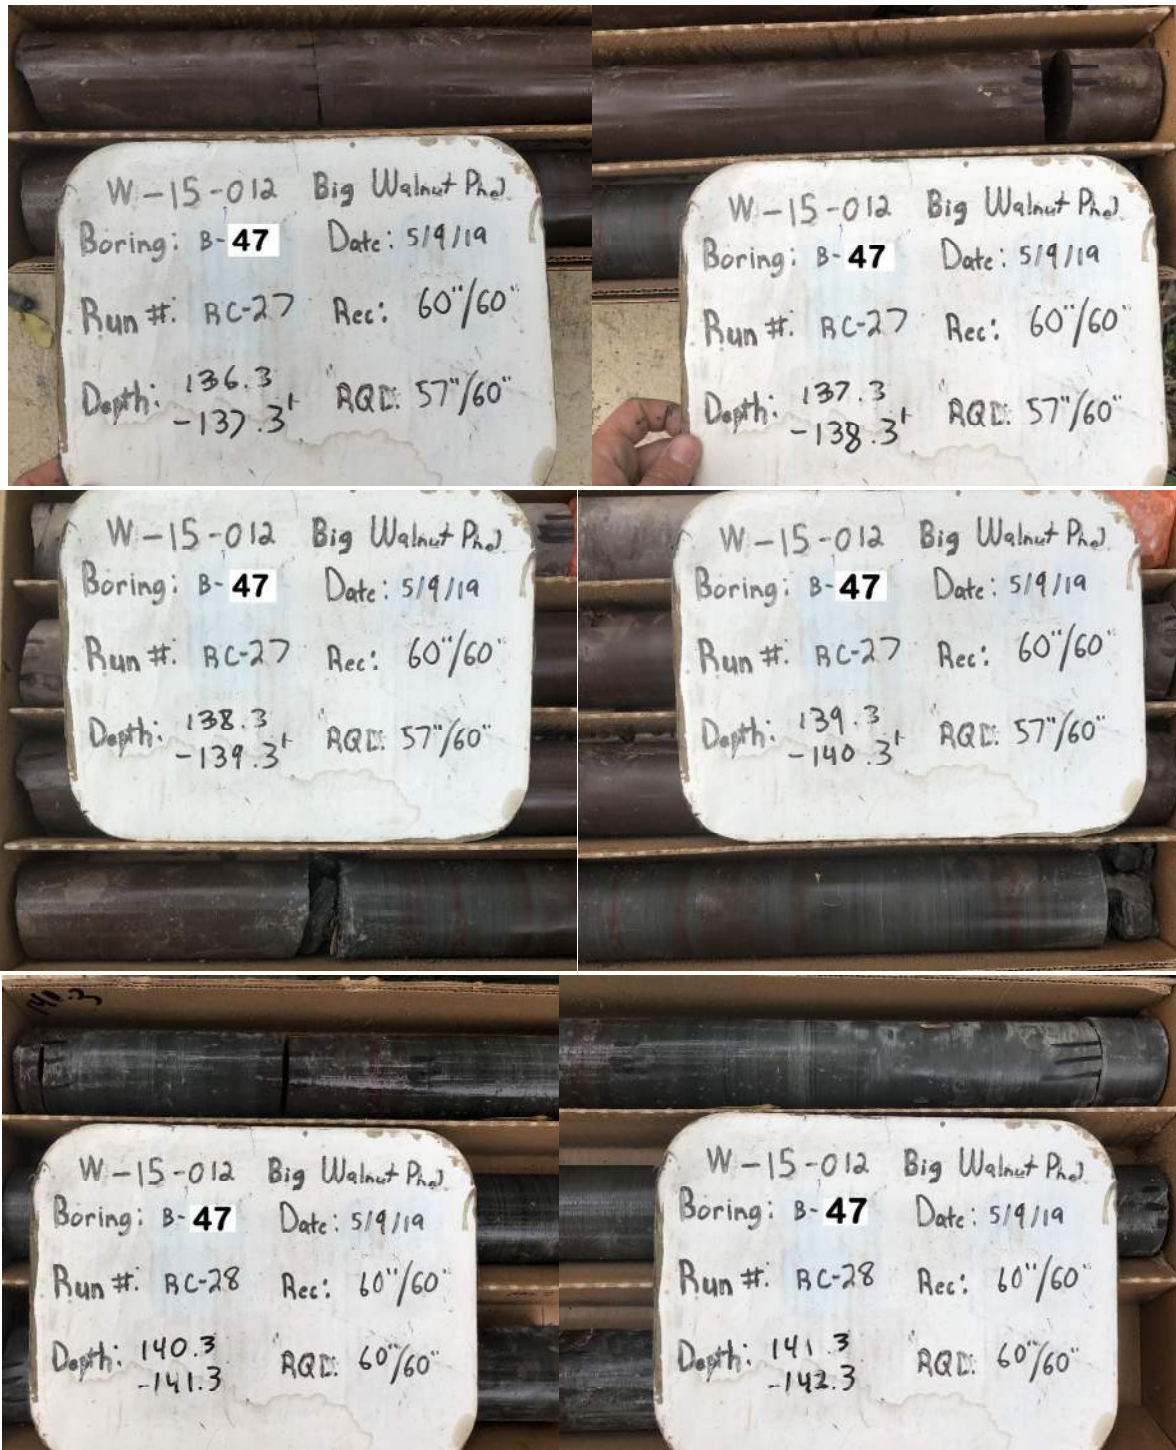 W-15-012 Big Walnut Ph2
Boring: B-47 Date: 5/9/19
Run #: RC-27 Rec: 60"/60"
Depth: 136.3 -137.3' RQD: 57"/60"
W-15-012 Big Walnut Ph2
Boring: B-47 Date: 5/9/19
Run #: RC-27 Rec: 60"/60"
Depth: 137.3 -138.3' RQD: 57"/60"
W-15-012 Big Walnut Ph2
Boring: B-47 Date: 5/9/19
Run #: RC-27 Rec: 60"/60"
Depth: 138.3 -139.3' RQD: 57"/60"
W-15-012 Big Walnut Ph2
Boring: B-47 Date: 5/9/19
Run #: RC-27 Rec: 60"/60"
Depth: 139.3 -140.3' RQD: 57"/60"
140.3
W-15-012 Big Walnut Ph2
Boring: B-47 Date: 5/9/19
Run #: RC-28 Rec: 60"/60"
Depth: 140.3 -141.3 RQD: 60"/60"
W-15-012 Big Walnut Ph2
Boring: B-47 Date: 5/9/19
Run #: RC-28 Rec: 60"/60"
Depth: 141.3 -142.3 RQD: 60"/60"